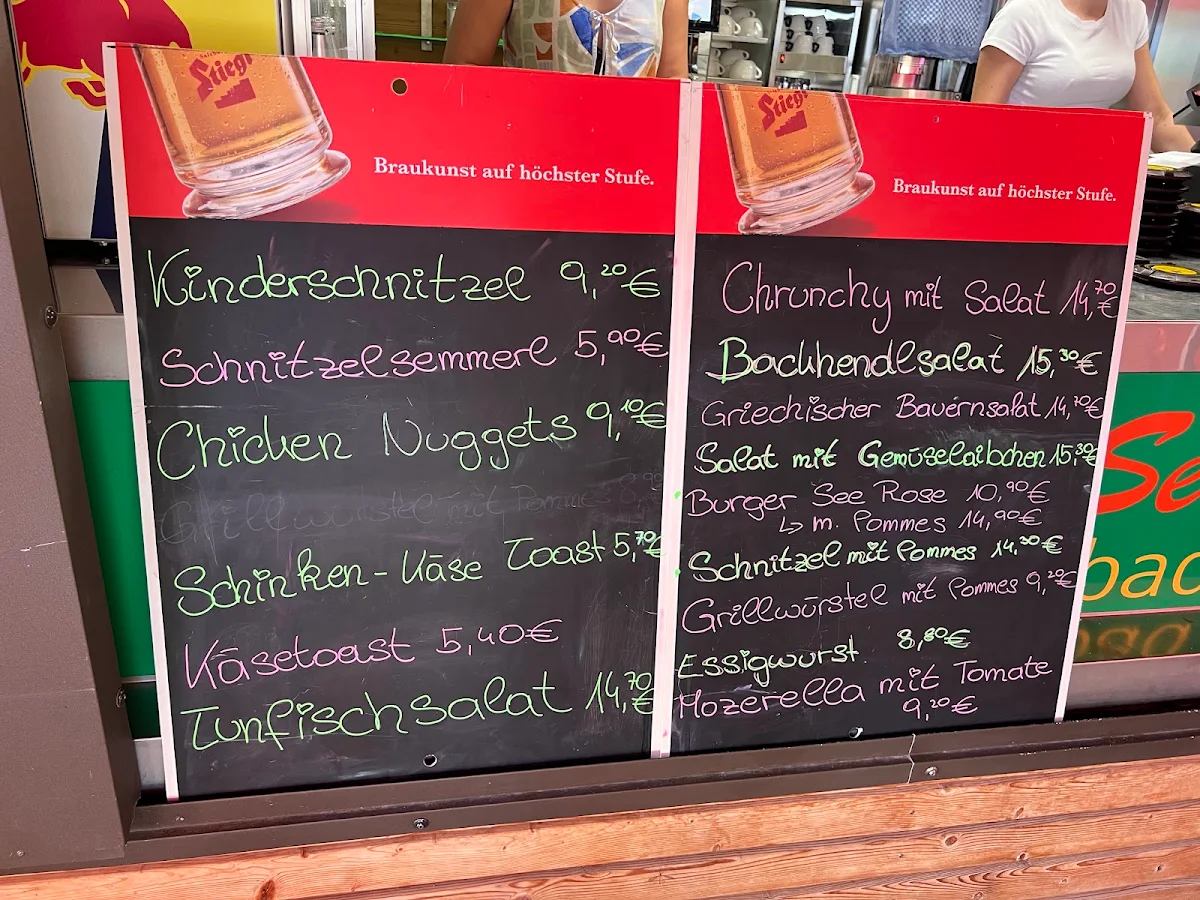 Stiegl
Braukunst auf höchster Stufe.
Kinderschnitzel 9,20€
Schnitzelsemmerl 5,90€
Chicken Nuggets 9,10€
Grillwürstel mit Pommes
Schinken-Käse Toast 5,70€
Käsetoast 5,40€
Tunfischsalat 14,70€
Stiegl
Braukunst auf höchster Stufe.
Chrunchy mit Salat 14,70€
Backhendlsalat 15,30€
Griechischer Bauernsalat 14,70€
Salat mit Gemüselaibchen 15,30€
Burger See Rose 10,90€
↳ m. Pommes 14,90€
Schnitzel mit Pommes 14,30€
Grillwürstel mit Pommes 9,20€
Essigwurst 8,80€
Mozerella mit Tomate
9,20€
Se
bac